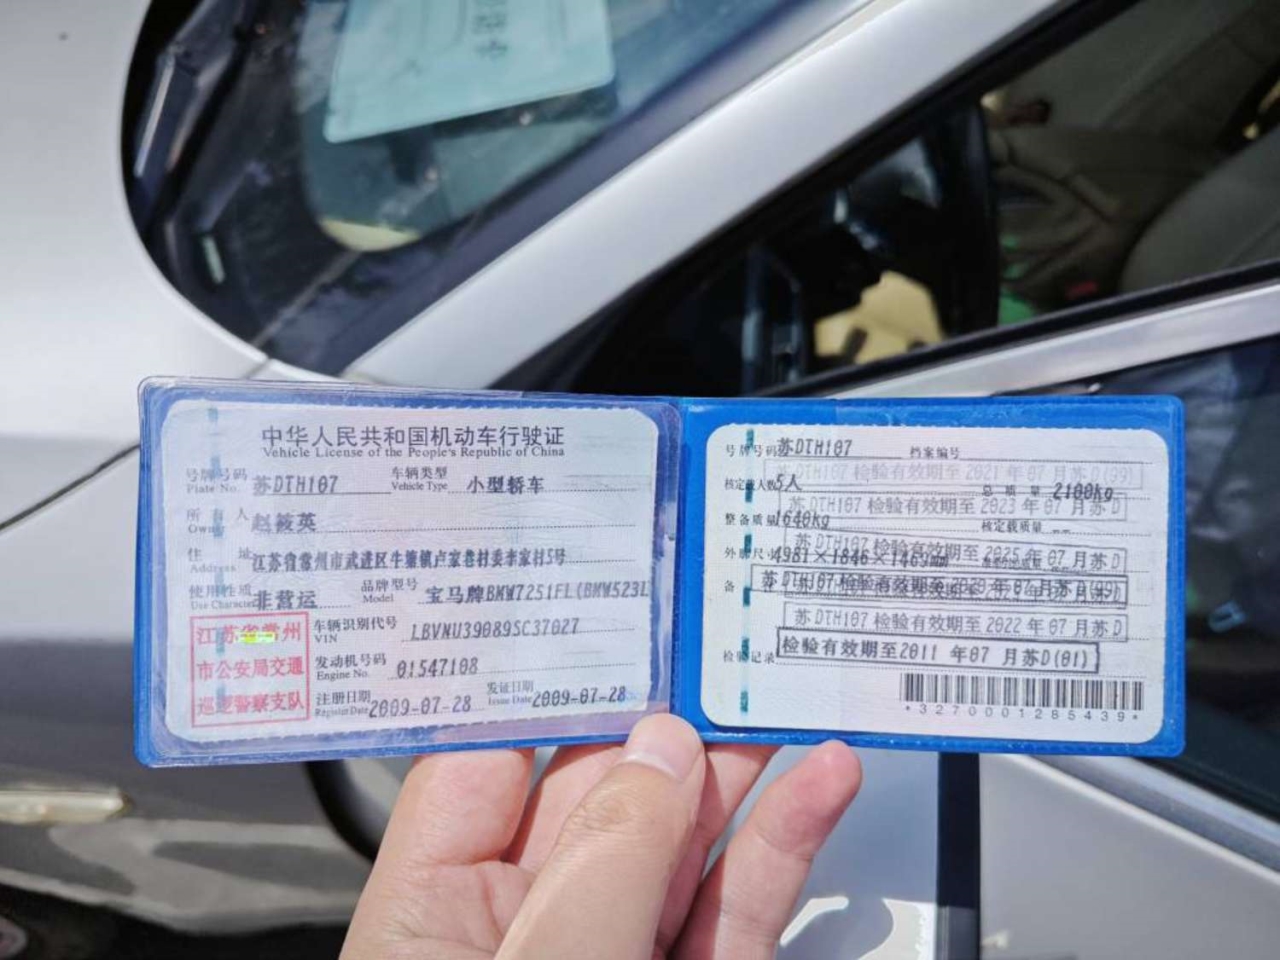 中华人民共和国机动车行驶证
Vehicle License of the People's Republic of China
号牌号码 苏DTH107 车辆类型 小型轿车
Plate No. Vehicle Type
所有人 赵筱英
Owner
住址 江苏省常州市武进区牛塘镇卢家巷村委李家村5号
Address
使用性质 非营运 品牌型号 宝马牌BMW7251FL(BMW523L
Use Character Model
江苏省常州
市公安局交通
巡逻警察支队
车辆识别代号 LBVNU39089SC37027
VIN
发动机号码 01547108
Engine No.
注册日期 2009-07-28 发证日期 2009-07-28
Register Date Issue Date
号牌号码 苏DTH107 档案编号
苏DTH107 检验有效期至 2021 年 07 月苏D(99)
核定载人数 5人 总质量 2100kg
苏DTH107 检验有效期至 2023 年 07 月苏D
整备质量 1640kg 核定载质量 --
苏DTH107 检验有效期至 2025 年 07 月苏D
外廓尺寸 4981×1846×1469mm
备 苏DTH107 检验有效期至 2020 年 07 月苏D(99)
苏DTH107 检验有效期至 2022 年 07 月苏D
检验记录 检验有效期至2011 年07 月苏D(01)
*3270001285439*